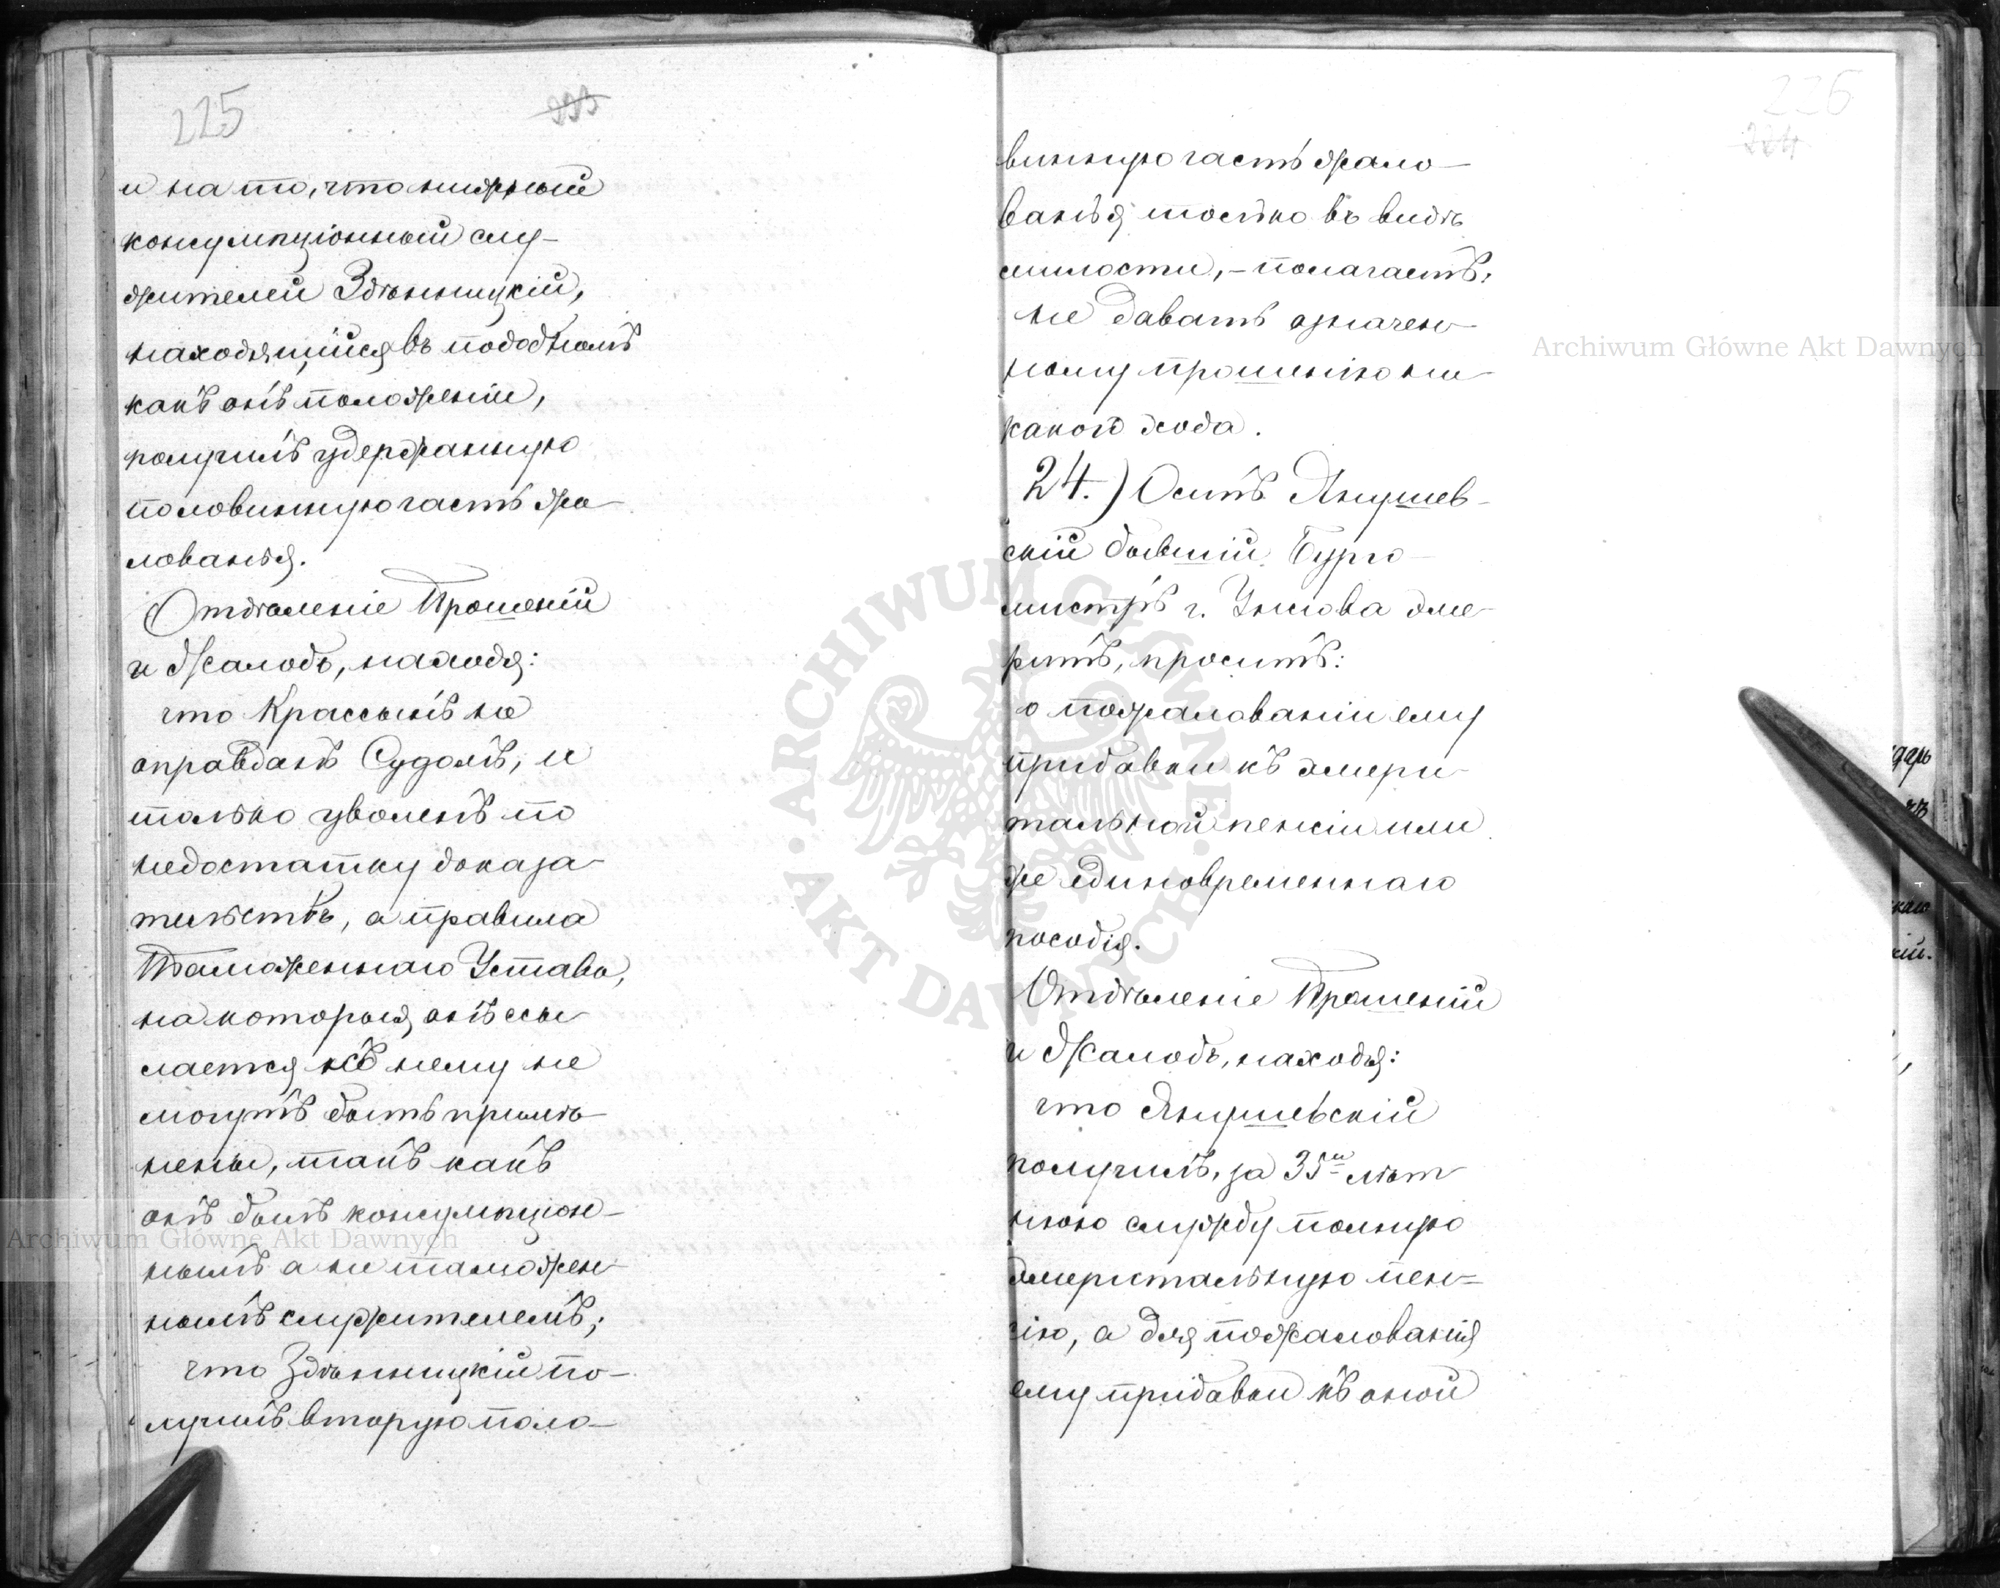 225
и на то, что нижный
консумпціонный слу-
жителей Здѣнницкій,
находящійся въ подобномъ
какъ онъ положеніи,
получилъ удержанную
половинную часть жа-
лованья.
Отдѣленіе Прошеній
и Жалобъ, находя:
что Крассынъ не
оправданъ Судомъ, и
только уволенъ по
недостатку доказа-
тельствъ, а правила
Таможеннаго Устава,
на которыя онъ ссы-
лается къ нему не
могутъ быть примѣ-
нены, такъ какъ
онъ былъ консумпціон-
нымъ а не таможен-
нымъ служителемъ;
что Здѣнницкій по-
лучилъ вторую поло-
226
224
винную часть жало-
ванья только въ видѣ
милости, - полагаетъ:
не давать означен-
ному прошенію ни-
какого хода.
24.) Осипъ Янушев-
скій бывшій Бурго-
мистръ г. Унеова эме-
ритъ, проситъ:
о пожалованіи ему
придавки къ эмери-
тальной пенсіи или
же единовременнаго
пособія.
Отдѣленіе Прошеній
и Жалобъ, находя:
что Янушевскій
получилъ, за 35и лѣт-
нюю службу полную
эмеритальную пен-
сію, а для пожалованія
ему придавки къ оной
Archiwum Główne Akt Dawnych
Archiwum Główne Akt Dawnych
ARCHIWUM GŁÓWNE AKT DAWNYCH